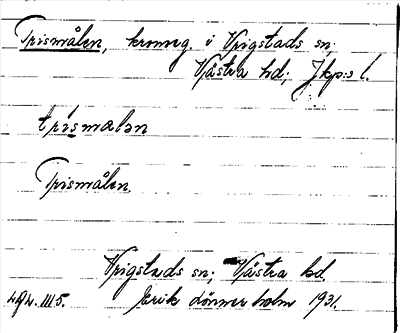 Trismålen, kronoeg. i Vrigstads sn;
Västra hd; Jkp:s l.
trismalən
Trismålen
Vrigstads sn; Västra hd.
Erik Lönnerholm 1931.